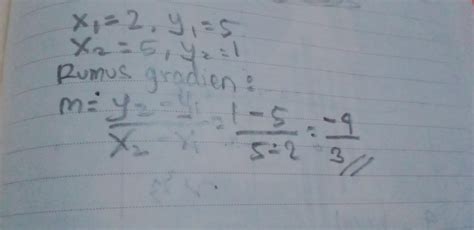 x₁=2, y₁=5
x₂=5, y₂=1
Rumus gradien:
m= y₂-y₁/x₂-x₁ = 1-5/5-2 = -4/3 //